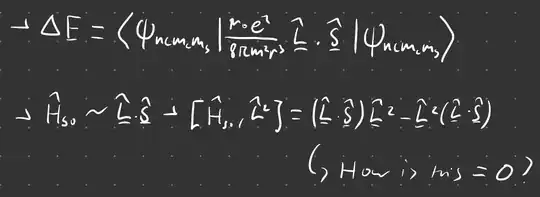 → ΔE = ⟨ψ_{n l m_l m_s} | \frac{μ_0 e^2}{8π m^2 r^3} \hat{L} · \hat{S} | ψ_{n l m_l m_s}⟩
→ \hat{H}_{so} ~ \hat{L} · \hat{S} → [\hat{H}_{so}, \hat{L}^2] = (\hat{L} · \hat{S}) \hat{L}^2 - \hat{L}^2 (\hat{L} · \hat{S})
↳ How is this = 0?